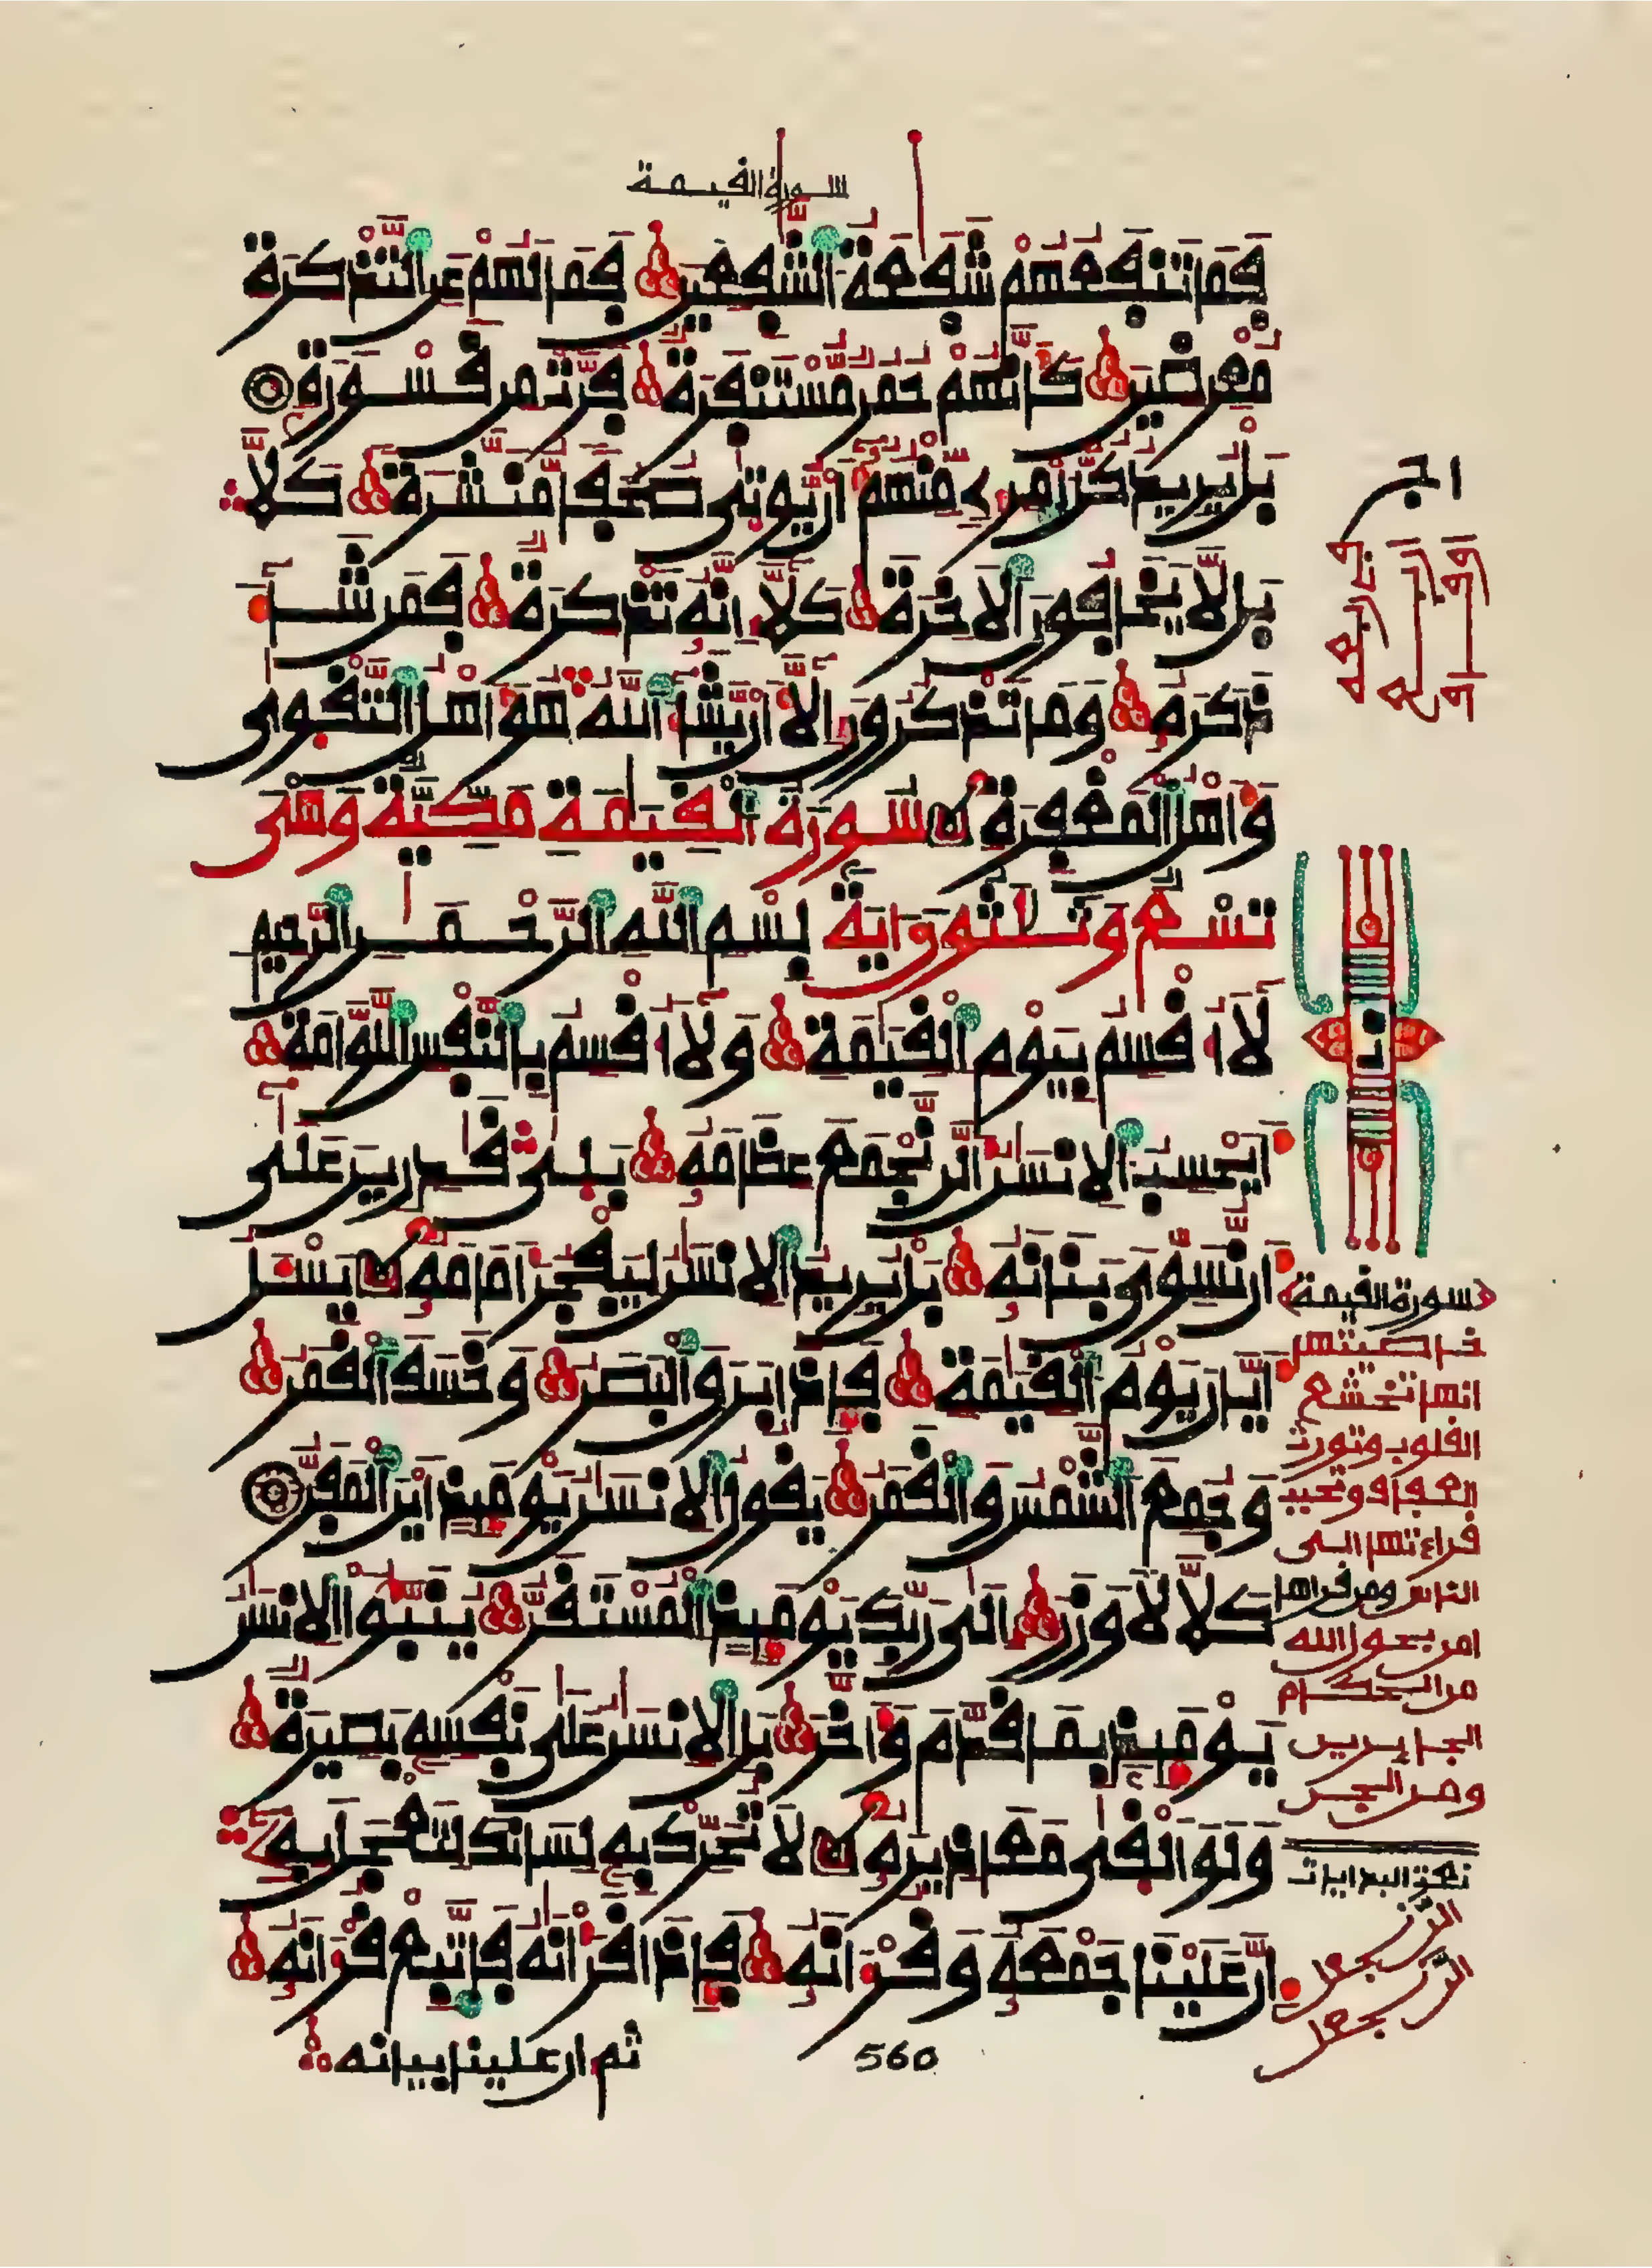 سورة القيمة
فَمَا تَنفَعُهُمْ شَفَعَةُ الشَّفِعِينَ فَمَا لَهُمْ عَنِ التَّذْكِرَةِ
مُعْرِضِينَ كَأَنَّهُمْ حُمُرٌ مُّسْتَنفَرَةٌ فَرَّتْ مِن قَسْوَرَةٍ
بَلْ يُرِيدُ كُلُّ امْرِئٍ مِّنْهُمْ أَن يُوتَى صُحُفًا مُّنَشَّرَةً كَلَّا
بَل لَّا يَخَافُونَ الْاخِرَةَ كَلَّا إِنَّهُ تَذْكِرَةٌ فَمَن شَاءَ
ذَكَرَهُ وَمَا تَذْكُرُونَ إِلَّا أَن يَّشَاءَ اللَّهُ هُوَ أَهْلُ التَّقْوَى
وَأَهْلُ الْمَغْفِرَةِ سُورَةُ الْقِيَمَةِ مَكِّيَّةٌ وَهْيَ
تِسْعٌ وَثَلَثُونَ ءَايَةً بِسْمِ اللَّهِ الرَّحْمَنِ الرَّحِيمِ
لَا أُقْسِمُ بِيَوْمِ الْقِيَمَةِ وَلَا أُقْسِمُ بِالنَّفْسِ اللَّوَّامَةِ
أَيَحْسِبُ الْانسَنُ أَلَّن نَّجْمَعَ عِظَامَهُ بَلَى قَدِرِينَ عَلَى
أَن نُّسَوِّيَ بَنَانَهُ بَلْ يُرِيدُ الْانسَنُ لِيَفْجُرَ أَمَامَهُ يَسْئَلُ
أَيَّانَ يَوْمُ الْقِيَمَةِ فَإِذَا بَرَقَ الْبَصَرُ وَخَسَفَ الْقَمَرُ
وَجُمِعَ الشَّمْسُ وَالْقَمَرُ يَقُولُ الْانسَنُ يَوْمَئِذٍ أَيْنَ الْمَفَرُّ
كَلَّا لَا وَزَرَ إِلَى رَبِّكَ يَوْمَئِذٍ الْمُسْتَقَرُّ يُنَبَّؤُا الْانسَنُ
يَوْمَئِذٍ بِمَا قَدَّمَ وَأَخَّرَ بَلِ الْانسَنُ عَلَى نَفْسِهِ بَصِيرَةٌ
وَلَوْ أَلْقَى مَعَاذِيرَهُ لَا تُحَرِّكْ بِهِ لِسَانَكَ لِتَعْجَلَ بِهِ
إِنَّ عَلَيْنَا جَمْعَهُ وَقُرْءَانَهُ فَإِذَا قَرَأْنَهُ فَاتَّبِعْ قُرْءَانَهُ
ثم ان علينا بيانه
560
سورة القيمة
خاصيتها
انها تخشع
القلوب وتورث
العفاف وتحبب
قراءتها الى
الناس ومن قراها
امن بعون الله
من الحكام
الجايرين
ومن الجن